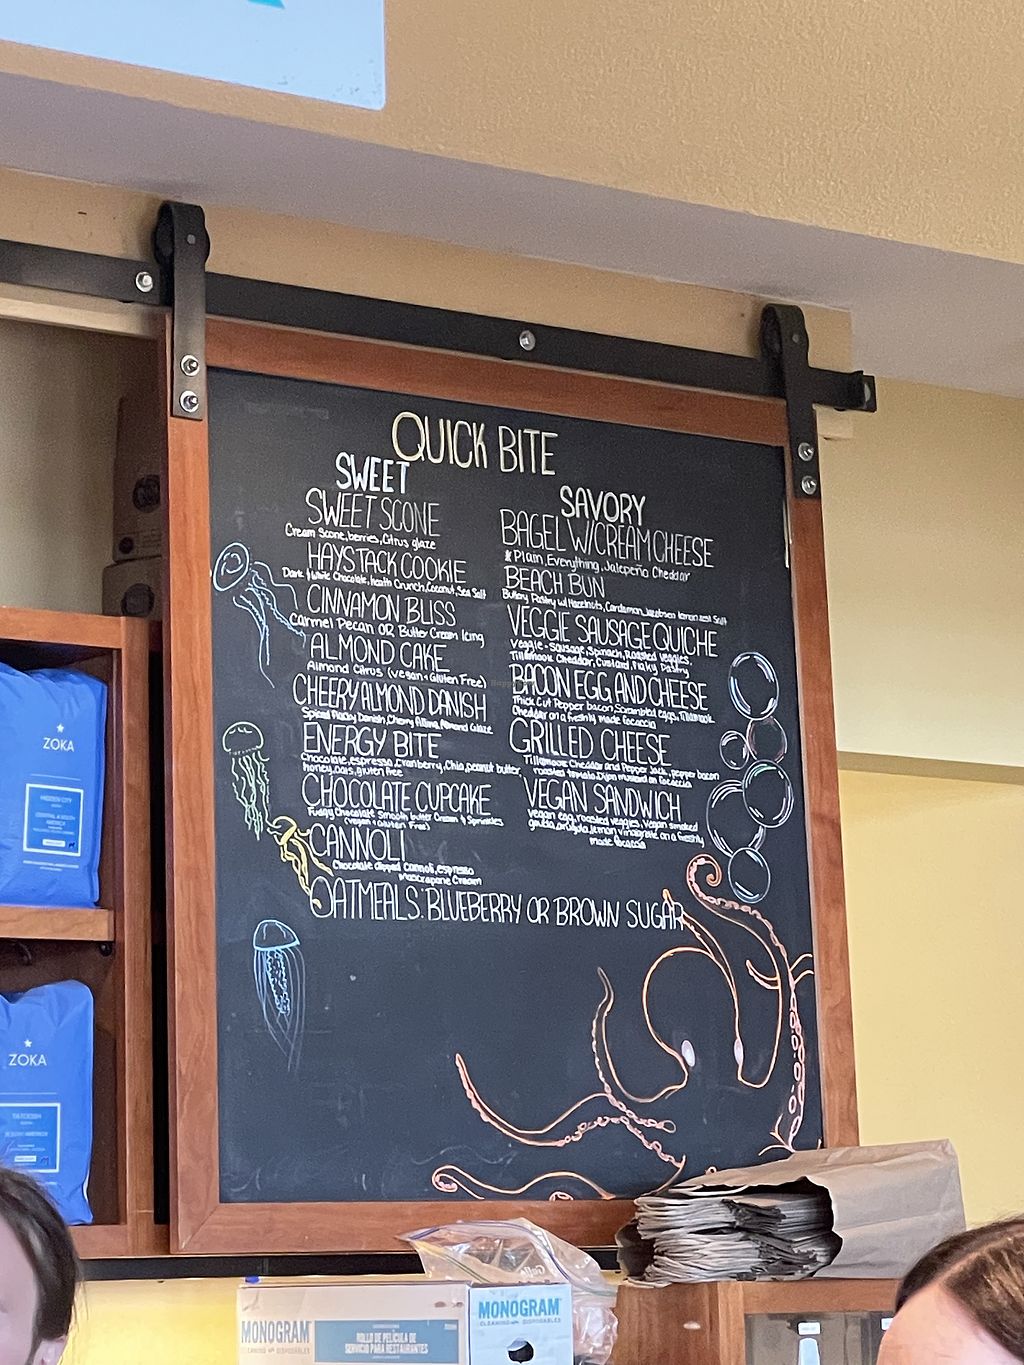 QUICK BITE
SWEET
SWEET SCONE
Cream Scone, berries, Citrus glaze
HAYSTACK COOKIE
Dark & White Chocolate, heath Crunch, Coconut, Sea Salt
CINNAMON BLISS
Carmel Pecan OR Butter Cream Icing
ALMOND CAKE
Almond Citrus (Vegan & Gluten Free)
CHEERY ALMOND DANISH
Spiced Flacky Danish, Cherry Filling, Almond Glaze
ENERGY BITE
Chocolate, espresso, Cranberry, Chia, peanut butter,
honey, oats, gluten free
CHOCOLATE CUPCAKE
Fudgy Chocolate Smooth butter Cream & Sprinkles
(vegan & Gluten Free)
CANNOLI
Chocolate dipped Cannoli, espresso
Mascrapone Cream
OATMEALS: BLUEBERRY OR BROWN SUGAR
SAVORY
BAGEL W/CREAM CHEESE
Plain, Everything, Jalepeño Cheddar
BEACH BUN
Buttery Pastry w/ Hazelnuts, Cardamon, Jacobsen lemon zest Salt
VEGGIE SAUSAGE QUICHE
Veggie-Sausage, Spinach, Roasted veggies,
Tillamook Cheddar, Custard, Flaky Pastry
BACON EGG AND CHEESE
Thick Cut Pepper bacon, Scrambled eggs, Tillamook
Cheddar on a freshly made focaccia
GRILLED CHEESE
Tillamoore Cheddar and Pepper Jack, pepper bacon
roasted tomato, Dijon mustard on focaccia
VEGAN SANDWICH
vegan egg, roasted veggies, Vegan smoked
gouda, arugula, lemon Vinaigrette on a freshly
made focaccia
ZOKA
ZOKA
MONOGRAM
CLEANING DISPOSABLES
ROLLO DE PELÍCULA DE
SERVICIO PARA RESTAURANTES
MONOGRAM
CLEANING DISPOSABLES